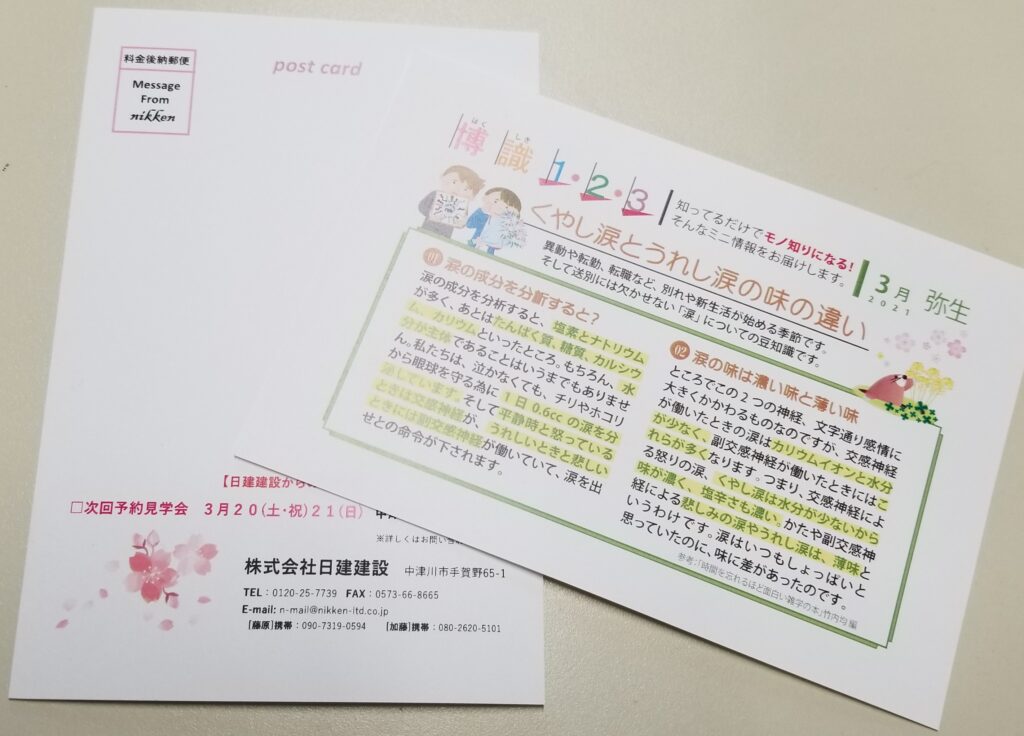 料金後納郵便
Message
From
nikken
post card
【日建建設から
□次回予約見学会 3月20(土・祝)21(日)
※詳しくはお問い
株式会社日建建設 中津川市手賀野65-1
TEL：0120-25-7739 FAX：0573-66-8665
E-mail: n-mail@nikken-ltd.co.jp
[藤原]携帯：090-7319-0594 [加藤]携帯：080-2620-5101
はく しき
博識 1・2・3
知ってるだけでモノ知りになる!
そんなミニ情報をお届けします。
3月 弥生
2021
くやし涙とうれし涙の味の違い
異動や転勤、転職など、別れや新生活が始める季節です。
そして送別には欠かせない「涙」についての豆知識です。
01 涙の成分を分析すると?
涙の成分を分析すると、塩素とナトリウム
が多く、あとはたんぱく質、糖質、カルシウ
ム、カリウムといったところ。もちろん、水
分が主体であることはいうまでもありませ
ん。私たちは、泣かなくても、チリやホコリ
から眼球を守る為に1日0.6ccの涙を分
泌しています。そして平静時と怒っている
ときは交感神経が、うれしいときと悲しい
ときには副交感神経が働いていて、涙を出
せとの命令が下されます。
02 涙の味は濃い味と薄い味
ところでこの2つの神経、文字通り感情に
大きくかかわるものなのですが、交感神経
が働いたときの涙はカリウムイオンと水分
が少なく、副交感神経が働いたときにはこ
れらが多くなります。つまり、交感神経によ
る怒りの涙、くやし涙は水分が少ないから
味が濃く、塩辛さも濃い。かたや副交感神
経による悲しみの涙やうれし涙は、薄味と
いうわけです。涙はいつもしょっぱいと
思っていたのに、味に差があったのです。
参考:「時間を忘れるほど面白い雑学の本」竹内均 編